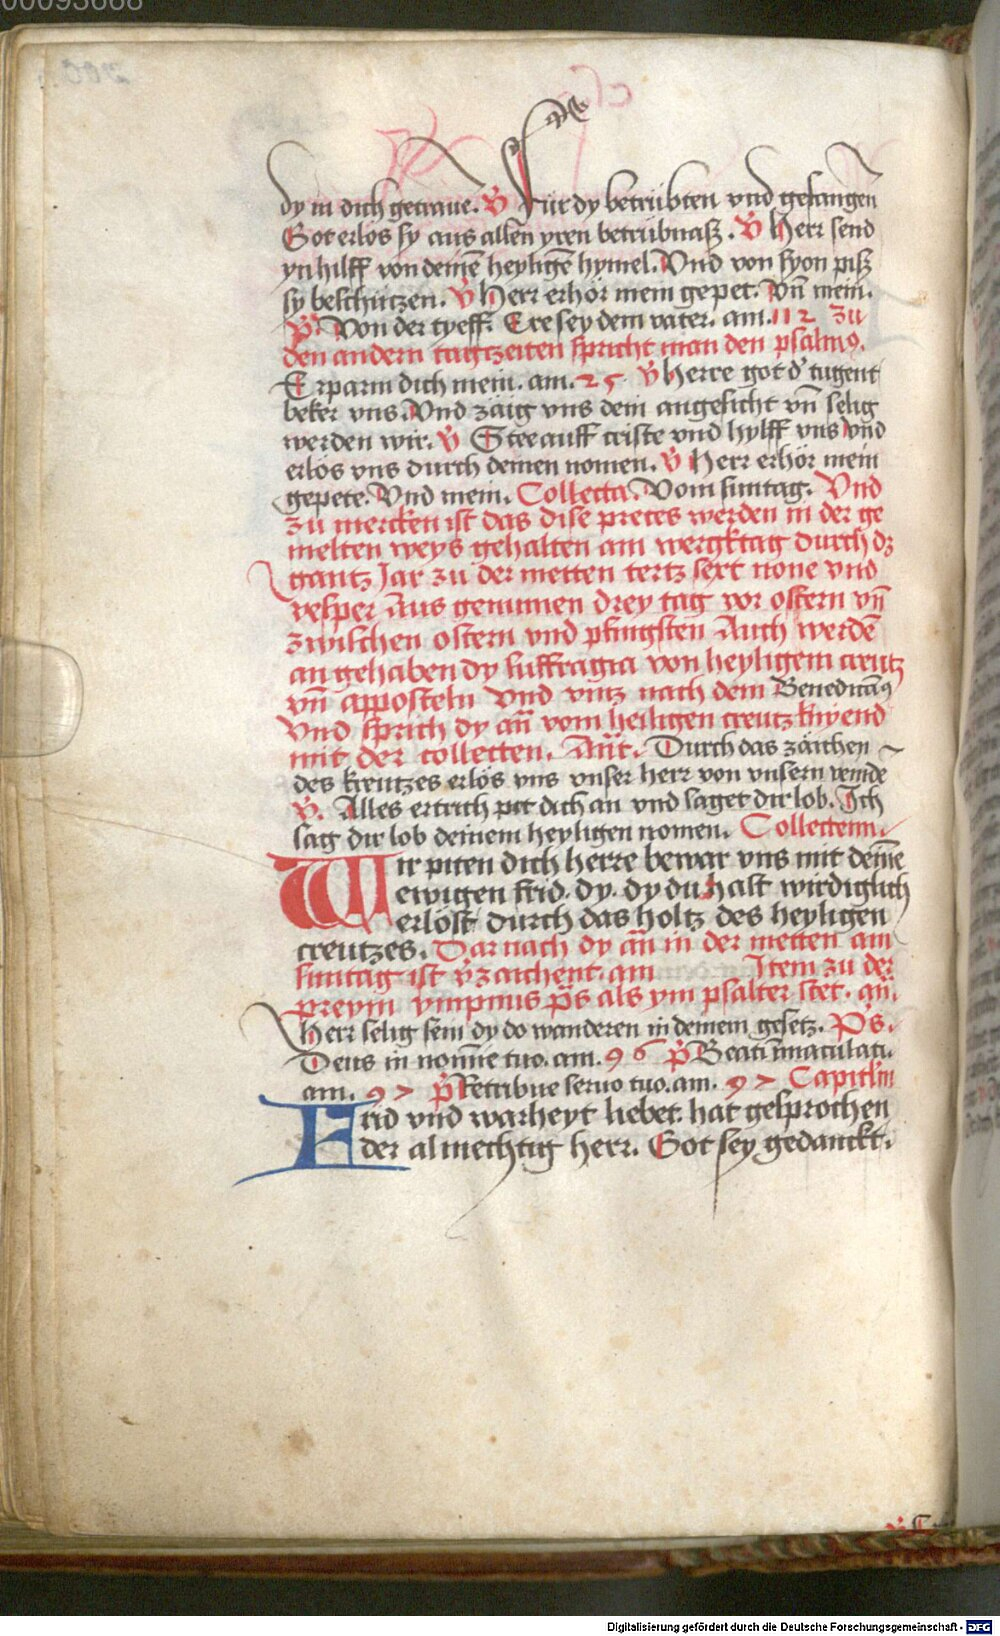 00093668
dy in dich getraue. v̄ Für dy betrübten vnd gefangen
Got erlos sy aus allen yren betrubnasz. v̄ Herr send
yn hilff von deinē heyligē hymel. Vnd von syon pisz
sy beschützen. v̄ Herr erhör mein gepet. Vn̄ mein.
p̄s. Von der tyeff. Ere sey dem vater. am. 112 Zu
den andern tagczeiten spricht man den psalmꝰ.
Erparm dich mein. am. 25. v̄ herre got d' tugent
beker vns. Vnd zäig vns dein angesicht vn̄ selig
werden wir. v̄ Stee auff criste vnd hylff vns vnd
erlös vns durch deinen nomen. v̄ Herr erhör mein
gepete. Vnd mein. Collecta. Vom suntag. Vnd
zu mercken ist das dise preces werden in der ge
melten weys gehalten am wergktag durch dz
gantz Jar zu der metten tertz sext none vnd
vesper Aus genumen drey tag vor ostern vn̄
zwischen ostern vnd pfingsten Auch werdē
an gehaben dy suffragia von heyligem creutz
vn̄ apposteln vnd vintz nach dem Benedicamꝰ
Vnd sprich dy an̄ vom heiligen creutz knyend
mit der collecten. Ant. Durch das zäichen
des kreutzes erlös vns vnser herr von vnsern veinde
v̄. Alles ertrich pet dich an vnd saget dir lob. Ich
sag dir lob deinem heyligen nomen. Collectenn.
Wir piten dich herre bewar vns mit deinē
ewigen frid. dy. dy du hast wirdiglich
erlöst durch das holtz des heyligen
creutzes. Dar nach dy an̄ in der metten am
suntag ist v̄zaichent. am Item zu der
preym ympnus p̄s als ym psalter stet. an̄.
Herr selig sein dy do wanderen in deinem gesetz. Ps.
Deus in nomīe tuo. am. 96 p̄s Beati īmaculati.
am. 97 p̄s Retribue seruo tuo. am. 97 Capitl'm
Frid vnd warheyt liebet. hat gesprochen
der almechtig herr. Got sey gedanckt.
Digitalisierung gefördert durch die Deutsche Forschungsgemeinschaft - DFG